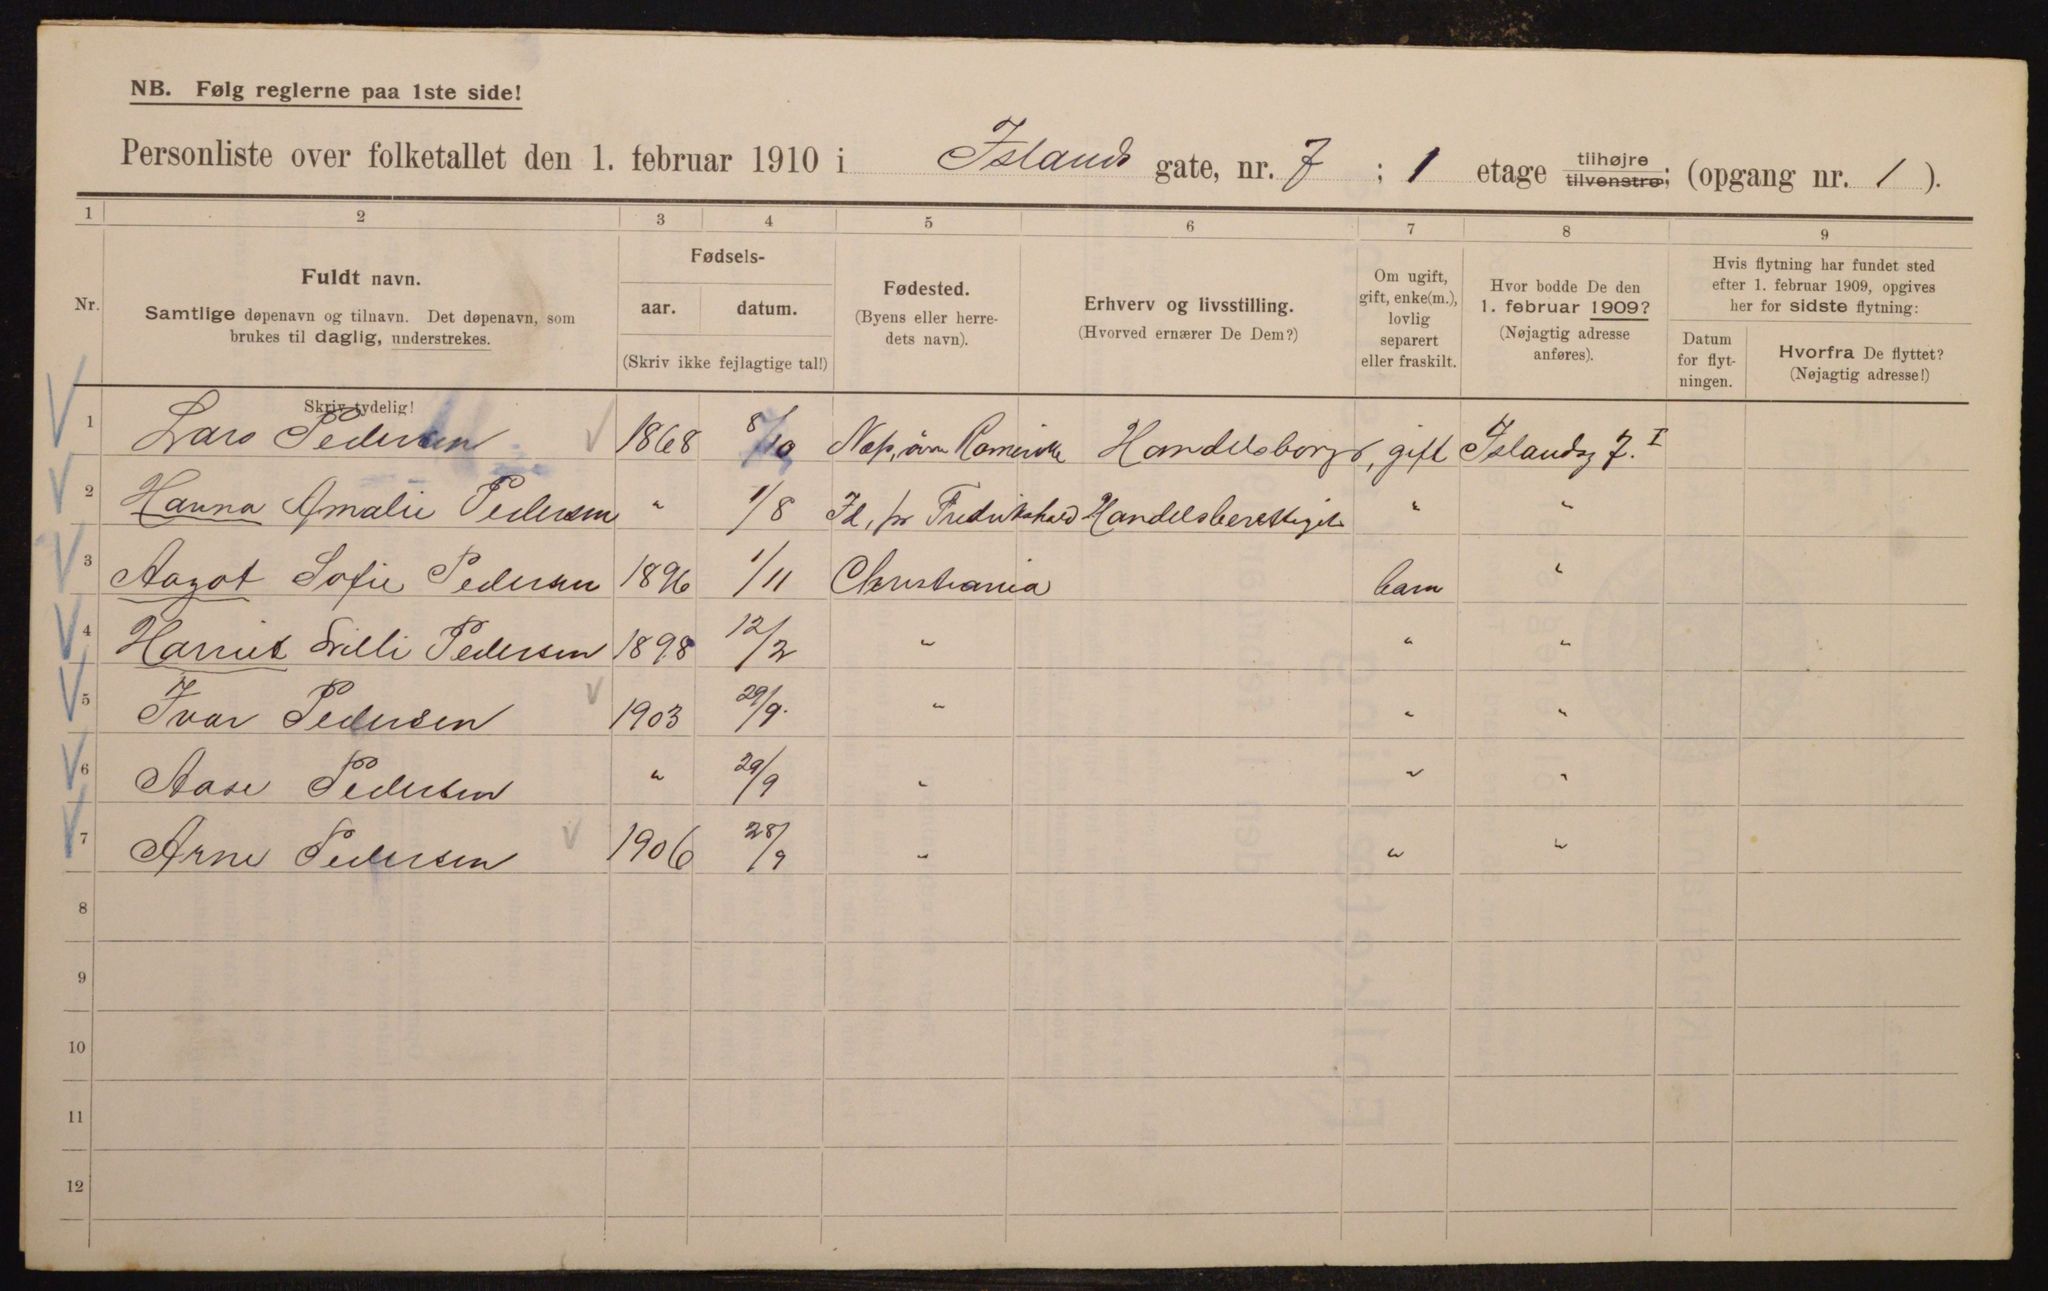 NB. Følg reglerne paa 1ste side!
Personliste over folketallet den 1. februar 1910 i Islands gate, nr. 7 ; 1 etage tilhøjre tilvenstre; (opgang nr. 1 ).
1 2 3 4 5 6 7 8 9
Nr.
Fuldt navn.
Samtlige døpenavn og tilnavn. Det døpenavn, som
brukes til daglig, understrekes.
Skriv tydelig!
Fødsels-
aar. datum.
(Skriv ikke fejlagtige tal!)
Fødested.
(Byens eller herre-
dets navn).
Erhverv og livsstilling.
(Hvorved ernærer De Dem?)
Om ugift,
gift, enke(m.),
lovlig
separert
eller fraskilt.
Hvor bodde De den
1. februar 1909?
(Nøjagtig adresse
anføres).
Hvis flytning har fundet sted
efter 1. februar 1909, opgives
her for sidste flytning:
Datum
for flyt-
ningen.
Hvorfra De flyttet?
(Nøjagtig adresse!)
1 Lars Pedersen 1868 8/10 Næs, Romerike Handelsborger, gift Islandsg 7. I
2 Hanna Amalie Pedersen " 1/8 Id, pr Fredrikshald Handelsberettiget " "
3 Aagot Sofie Pedersen 1896 1/11 Christiania barn "
4 Harriet Lilli Pedersen 1898 12/2 " " "
5 Ivar Pedersen 1903 29/9. " " "
6 Aase Pedersen " 29/9 " " "
7 Arne Pedersen 1906 28/9 " " "
8
9
10
11
12